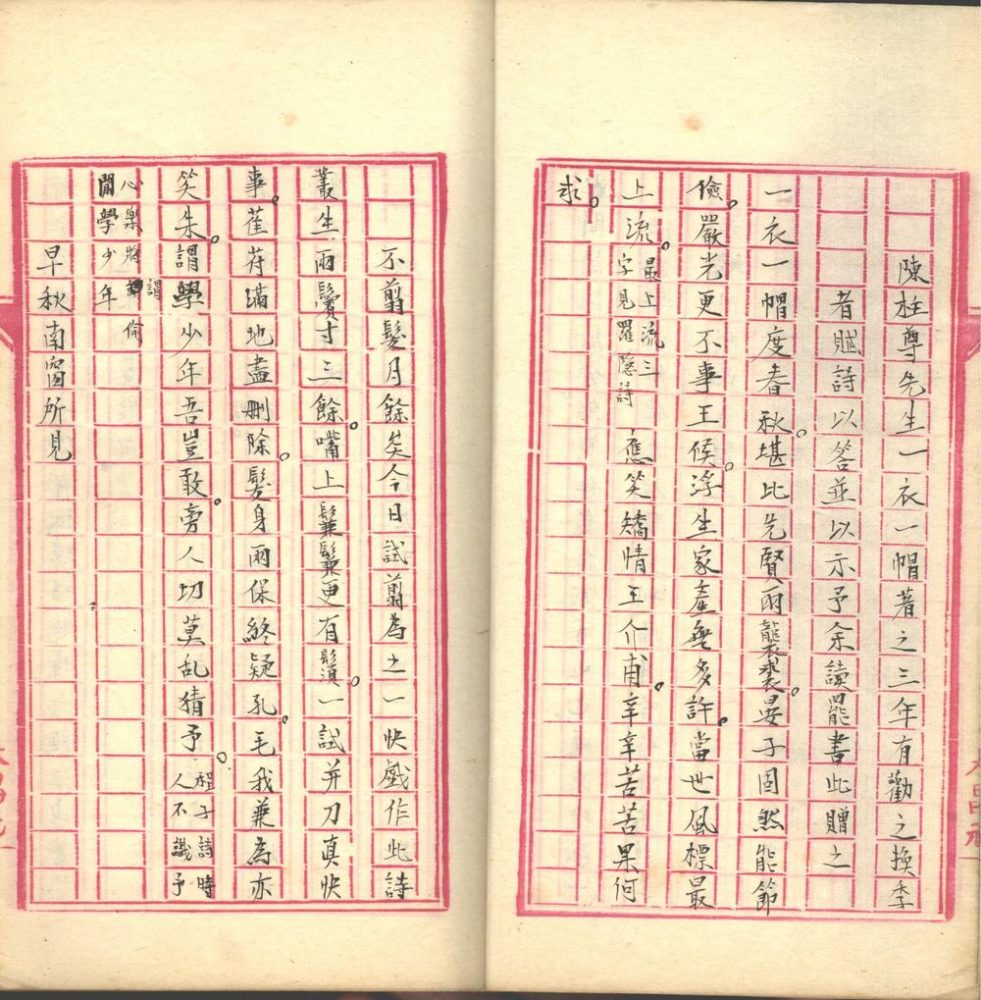 陳柱尊先生一衣一帽著之三年有勸之換季
者賦詩以答並以示予余讀罷書此贈之
一衣一帽度春秋。堪比先賢兩襲裘。晏子固然能節
儉。嚴光更不事王侯。浮生家產無多許。當世風標最
上流。最上流三字見羅隱詩 應笑矯情王介甫。辛辛苦苦果何
求。
不剪髮月餘矣今日試剪為之一快戲作此詩
叢生兩鬢寸三餘。嘴上鬑鬑更有鬚。一試并刀真快
事。萑苻滿地盡刪除。髮身兩保終疑孔。毛我兼為亦
笑朱。謂學少年吾豈敢。旁人切莫亂猜予。程子詩時人不識予
心樂將謂偷閒學少年
早秋南窗所見